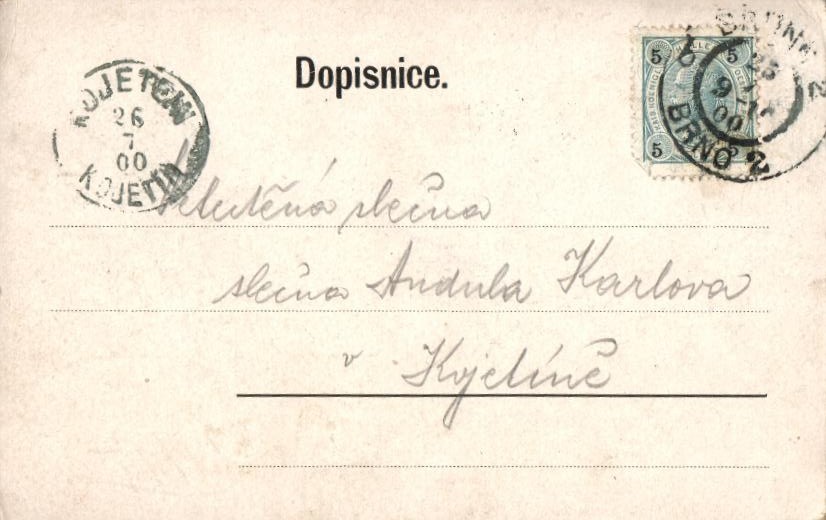 Dopisnice.
KOJETEIN
26
7
00
KOJETÍN
BRÜNN 2
25
7
00
BRNO 2
5 HELLER 5
5 5
slečna
slečna Andula Karlova
v Kojetíně